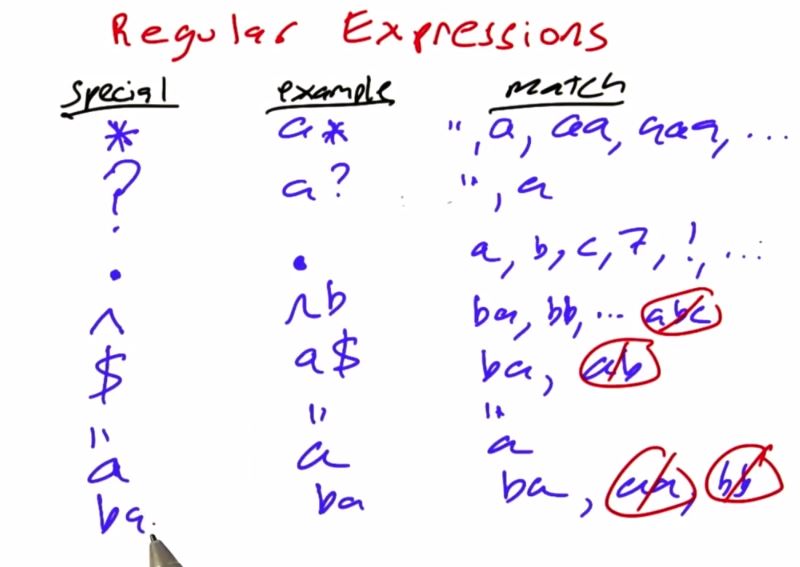 Regular Expressions
special example match
* a* '', a, aa, aaa, ...
? a? '', a
. . a, b, c, 7, !, ...
^ ^b ba, bb, ... abc
$ a$ ba, ab
'' '' ''
a a a
ba ba ba, aa, bb